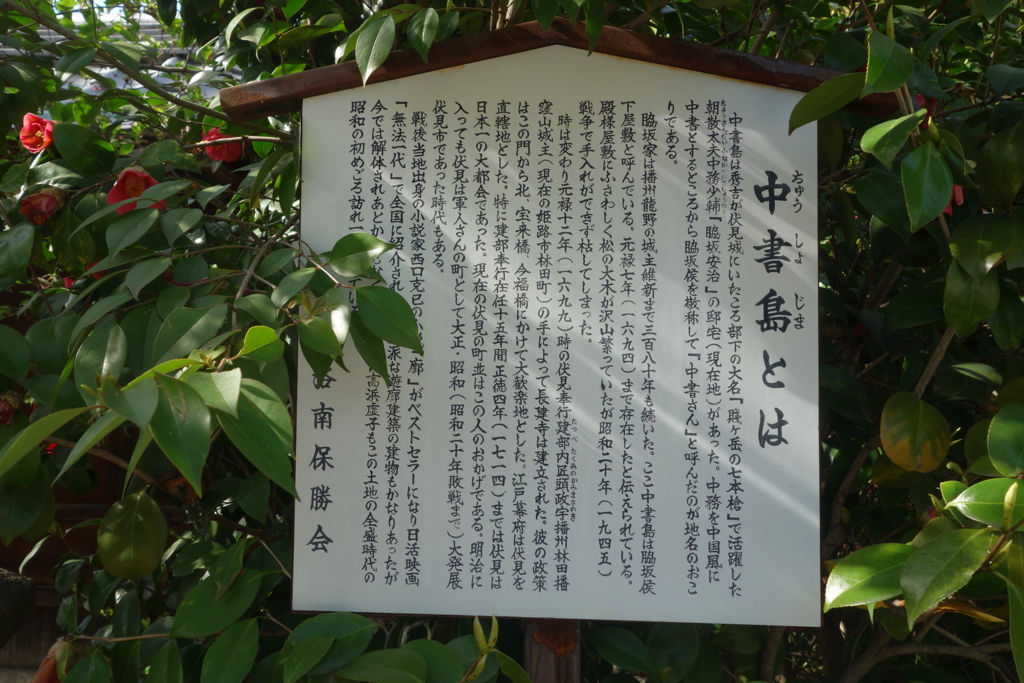 中書島とは
ちゅう しょ じま
中書島は秀吉が伏見城にいたころ部下の大名『賤ヶ岳の七本槍』で活躍した
朝散太夫中務少輔『脇坂安治』の邸宅（現在地）があった。中務を中国風に
中書とするところから脇坂侯を敬称して『中書さん』と呼んだのが地名のおこ
りである。
脇坂家は播州龍野の城主維新まで三百八十年も続いた。ここ中書島は脇坂侯
下屋敷と呼んでいる。元禄七年（一六九四）まで存在したと伝えられている。
殿様屋敷にふさわしく松の大木が沢山繁っていたが昭和二十年（一九四五）
戦争で手入れができず枯してしまった。
時は変わり元禄十二年（一六九九）時の伏見奉行建部内匠頭政宇播州林田播
たつべ たくみのかみまさのき
窪山城主（現在の姫路市林田町）の手によって長建寺は建立された。彼の政策
はこの門から北、宝来橋、今福橋にかけて大歓楽地とした。江戸幕府は伏見を
直轄地とした。特に建部奉行在任十五年間正徳四年（一七一四）までは伏見は
日本一の大都会であった。現在の伏見の町並はこの人のおかげである。明治に
入っても伏見は軍人さんの町として大正・昭和（昭和二十年敗戦まで）大発展
伏見市であった時代もある。
戦後当地出身の小説家西口克己の 廓』がベストセラーになり日活映画
「無法一代」で全国に紹介され 派な遊廓建築の建物もかなりあったが
今では解体されあとか 高浜虚子もこの土地の全盛時代の
昭和の初めごろ訪れ
南保勝会